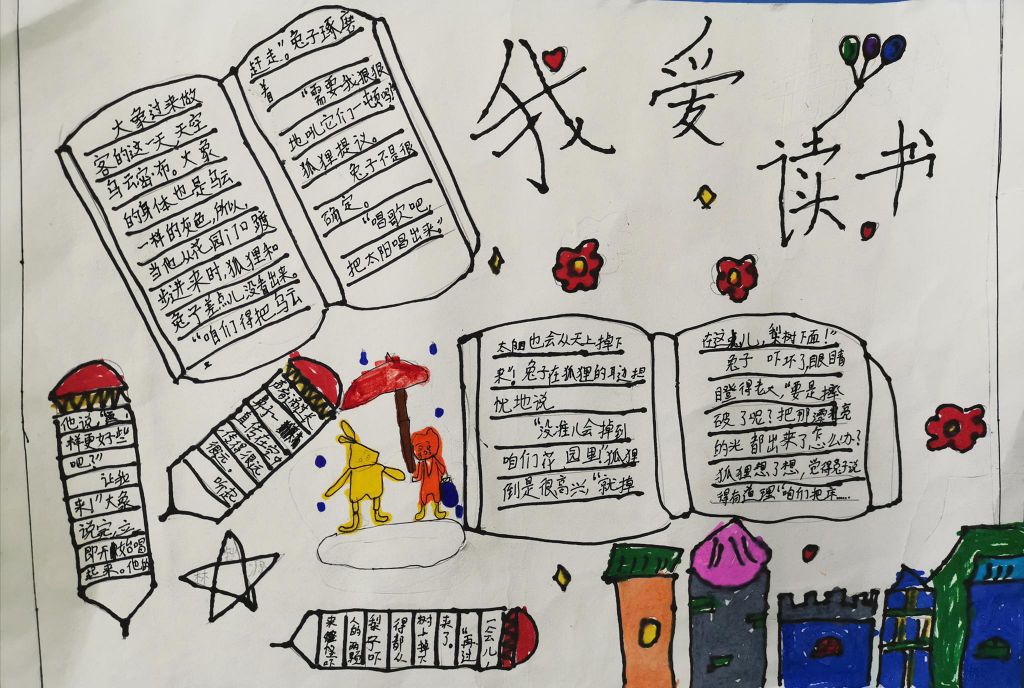 我爱
读书
大象过来做
客的这一天,天空
乌云密布。大象
的身体也是乌云
一样的灰色,所以,
当他从花园门口踱
步进来时,狐狸和
兔子差点儿没看出来。
"咱们得把乌云
赶走"。兔子琢磨
着 "需要我狠狠
地吼它们一顿吗?"
狐狸提议。
兔子不是很
确定。
"唱歌吧,
把太阳唱出来。"
他说,"
样更好些
吧?"
让我
来!"大象
说完,立
即开始唱
起来。他的
很远,
听起
太阳也会从天上掉下
来"!兔子在狐狸的耳边担
忧地说
"没准儿会掉到
咱们花园里"狐狸
倒是很高兴,"就掉
在这儿,梨树下面!"
兔子 吓坏了,眼睛
瞪得老大,"要是摔
破了呢?把那漂亮
的光 都出来了,怎么办?
狐狸想了想,觉得兔子说
得有道理"咱们把床……
一会儿!
"再过
来了。
树上掉下
得都从
梨子吓
人的
来